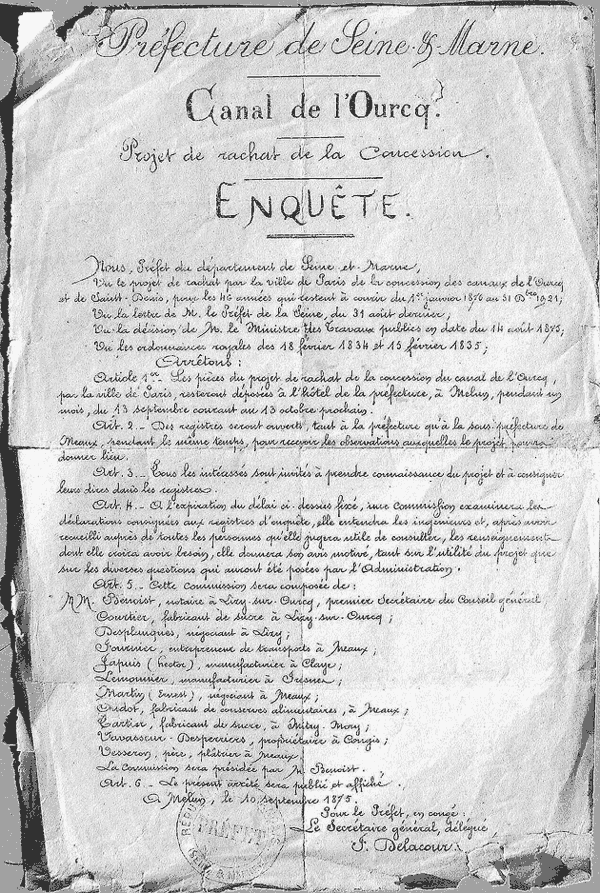 Préfecture de Seine-&-Marne.
Canal de l'Ourcq.
Projet de rachat de la Concession.
ENQUÊTE.
Nous, Préfet du département de Seine-et-Marne,
Vu le projet de rachat par la Ville de Paris de la concession des canaux de l'Ourcq
et de Saint-Denis, pour les 46 années qui restent à courir du 1er janvier 1876 au 31 Dbre 1921;
Vu la lettre de M. le Préfet de la Seine, du 31 août dernier;
Vu la décision de M. le Ministre des Travaux publics en date du 14 août 1875;
Vu les ordonnances royales des 18 février 1834 et 15 février 1835;
Arrêtons:
Article 1er. Les pièces du projet de rachat de la concession du canal de l'Ourcq,
par la ville de Paris, resteront déposées à l'hôtel de la préfecture, à Melun, pendant un
mois, du 13 septembre courant au 13 octobre prochain.
Art. 2. - Des registres seront ouverts, tant à la préfecture qu'à la sous-préfecture de
Meaux, pendant le même temps, pour recevoir les observations auxquelles le projet pourra
donner lieu.
Art. 3. - Tous les intéressés sont invités à prendre connaissance du projet et à consigner
leurs dires dans les registres.
Art. 4. - A l'expiration du délai ci-dessus fixé, une commission examinera les
déclarations consignées aux registres d'enquête, elle entendra les ingénieurs et, après avoir
recueilli auprès de toutes les personnes qu'elle jugera utile de consulter, les renseignements
dont elle croira avoir besoin, elle donnera son avis motivé, tant sur l'utilité du projet que
sur les diverses questions qui auront été posées par l'Administration.
Art. 5. - Cette commission sera composée de:
MM. Benoist, notaire à Lizy-sur-Ourcq, premier secrétaire du Conseil général
Courtier, fabricant de sucre à Lizy-sur-Ourcq;
Desplanques, négociant à Lizy;
Fournier, entrepreneur de transports à Meaux;
Japuis (hector), manufacturier à Claye;
Lemonnier, manufacturier à Fresnes;
Martin (Ernest), négociant à Meaux;
Oudot, fabricant de conserves alimentaires, à Meaux;
Tartier, fabricant de sucre, à Mitry-Mory;
Vavasseur-Desperriers, propriétaire à Congis;
Vesseron, père, plâtrier à Meaux
La commission sera présidée par M. Benoist.
Art. 6. - Le présent arrêté sera publié et affiché.
A Melun, le 10 septembre 1875.
Pour le Préfet, en congé:
Le Secrétaire général, délégué,
Delacour.
PRÉFET